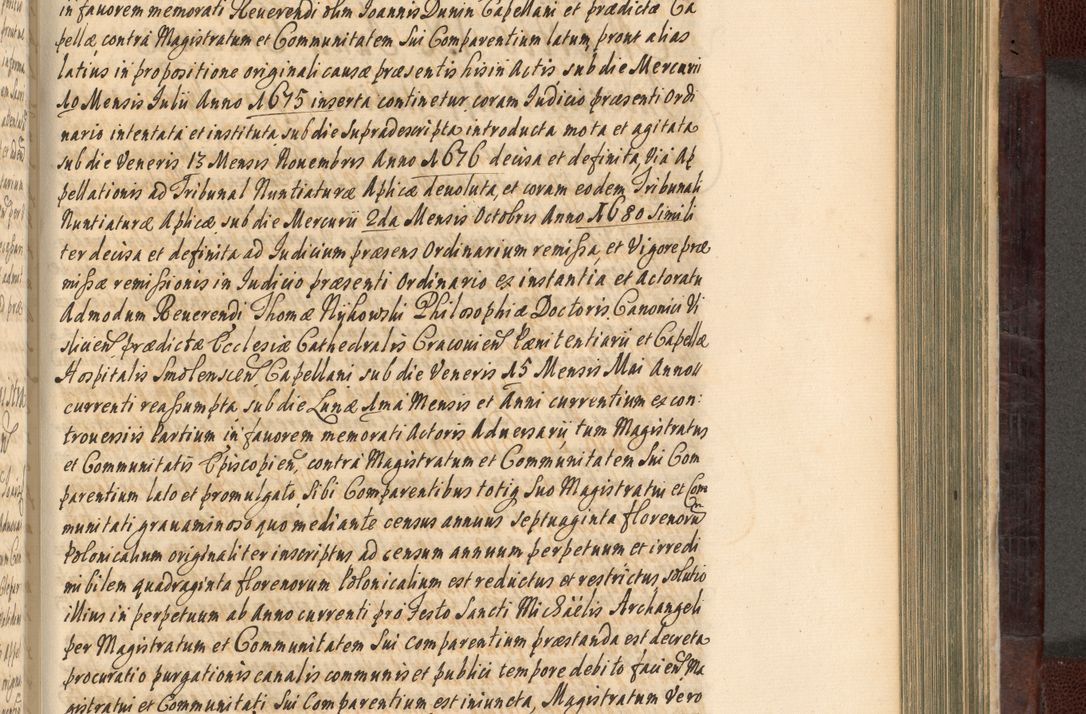 in favorem memorati Reverendi olim Joannis Dunin Capellani et prædictæ Ca
pellæ contra Magistratum et Communitatem Sui Comparentium latum, prout alias
latius in propositione originali causæ præsentis hisin Actis sub die Mercurii
10 Mensis Julii Anno 1675 inserta continetur, coram Judicio præsenti Ordi
nario intentata et instituta, sub die supradescripta introducta mota et agitata
sub die Veneris 13 Mensis Novembris Anno 1676 decisa et definita, via Ap
pellationis ad Tribunal Nuntiaturæ Aplicæ devoluta, et coram eodem Tribunali
Nuntiaturæ Aplicæ sub die Mercurii 2da Mensis Octobris Anno 1680 Simili
ter decisa et definita ad Judicium præsens Ordinarium remissa, et Vigore præ
missæ remissionis in Judicio præsenti Ordinario ex instantia et Actoratu
Admodum Reverendi Thomæ Nykowski Philosophiæ Doctoris Canonici Vi
sliceń prædictæ Ecclesiæ Cathedralis Cracovień Pænitentiarii et Capellæ
Hospitalis Smolensceń Capellani sub die Veneris 15 Mensis Mai Anno
currenti reassumpta sub die Lunæ 1ma Mensis et Anni currentium ex con:
troversiis Partium in favorem memorati Actoris Adversarii, tum Magistratus
et Communitatis Episcopień, contra Magistratum et Communitatem Sui Com
parentium lato et promulgato, Sibi Comparentibus totiq Suo Magistratui et Com
munitati gravaminoso quo mediante census annuus septuaginta florenorū
Polonicalium originaliter inscriptus ad censum annuum perpetuum et irredi
mibilem quadraginta florenorum Polonicalium est reductus et restrictus solutio
illius in perpetuum ab Anno currenti pro Festo Sancti Michäelis Archangeli
per Magistratum et Communitatem Sui Comparentium præstanda est decreta
procuratio purgationis canalis communis et publici tempore debito facień Ma
gistratui et Communitati Sui Comparentium est iniuncta, Magistratum Vero